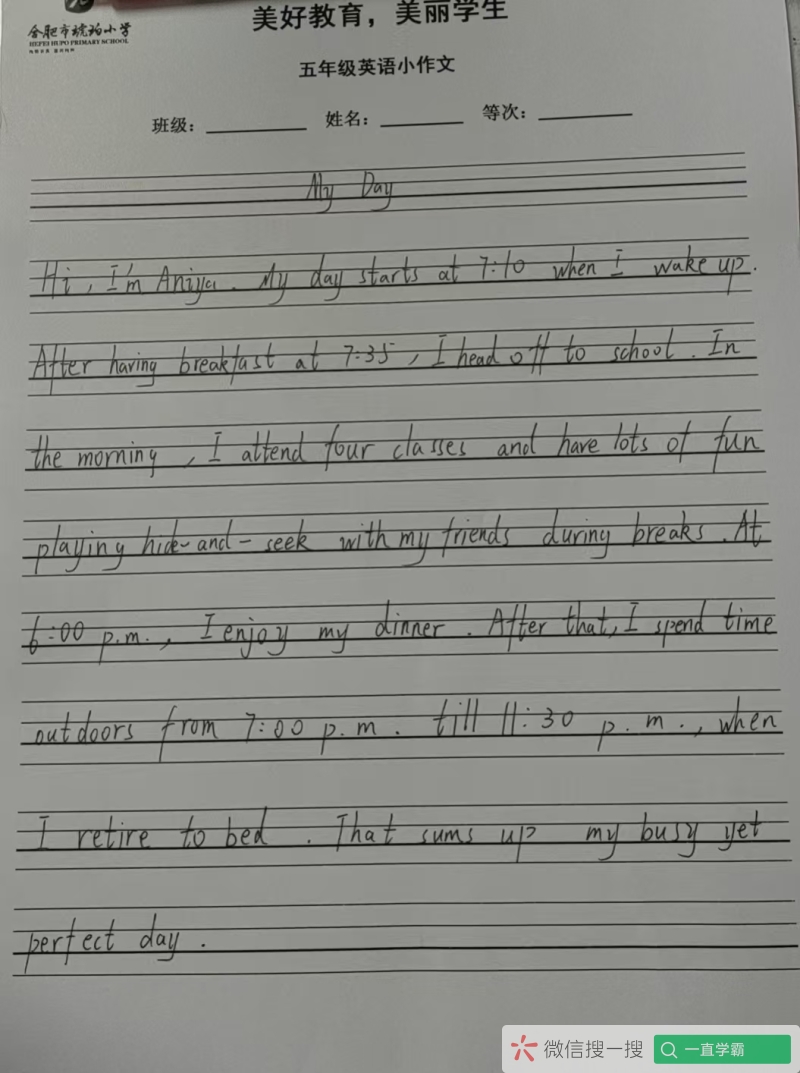 合肥市琥珀小学
HEFEI HUPO PRIMARY SCHOOL
美好教育，美丽学生
五年级英语小作文
班级： 姓名： 等次：
My Day
Hi, I'm Aniya. My day starts at 7:10 when I wake up.
After having breakfast at 7:35, I head off to school. In
the morning, I attend four classes and have lots of fun
playing hide-and-seek with my friends during breaks. At
6:00 p.m., I enjoy my dinner. After that, I spend time
outdoors from 7:00 p.m. till 11:30 p.m., when
I retire to bed. That sums up my busy yet
perfect day.
微信搜一搜 一直学霸